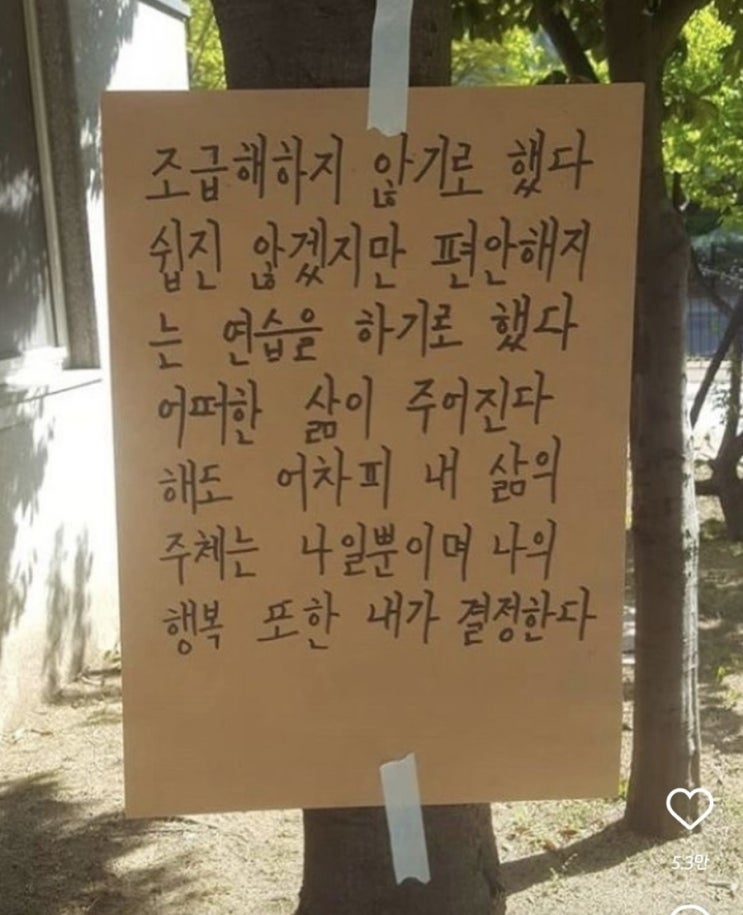 조급해하지 않기로 했다
쉽진 않겠지만 편안해지
는 연습을 하기로 했다
어떠한 삶이 주어진다
해도 어차피 내 삶의
주체는 나일뿐이며 나의
행복 또한 내가 결정한다
5.3만